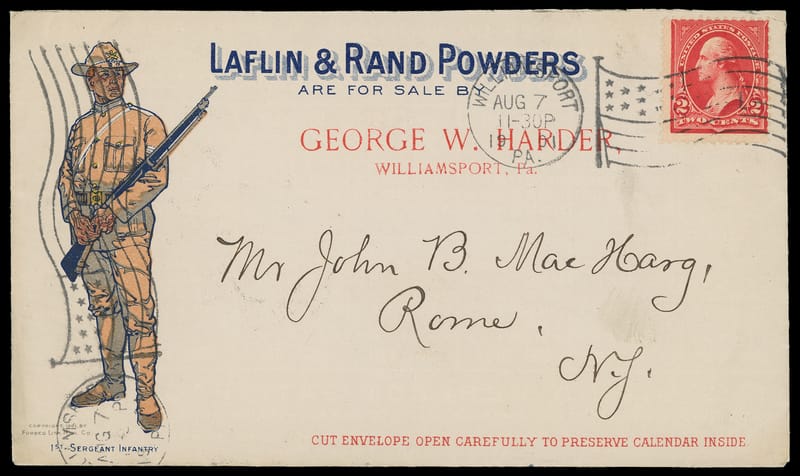 LAFLIN & RAND POWDERS
ARE FOR SALE B
GEORGE W. HARDER,
WILLIAMSPORT, Pa.
WILLIAMSPORT
AUG 7
11-30P
19 01
PA.
UNITED STATES POSTAGE
2 2
TWO CENTS
Mr John B. Mac Harg,
Rome,
N.Y.
COPYRIGHT 1901 BY
FORBES LITH. MFG. CO.
1ST SERGEANT INFANTRY
CUT ENVELOPE OPEN CAREFULLY TO PRESERVE CALENDAR INSIDE